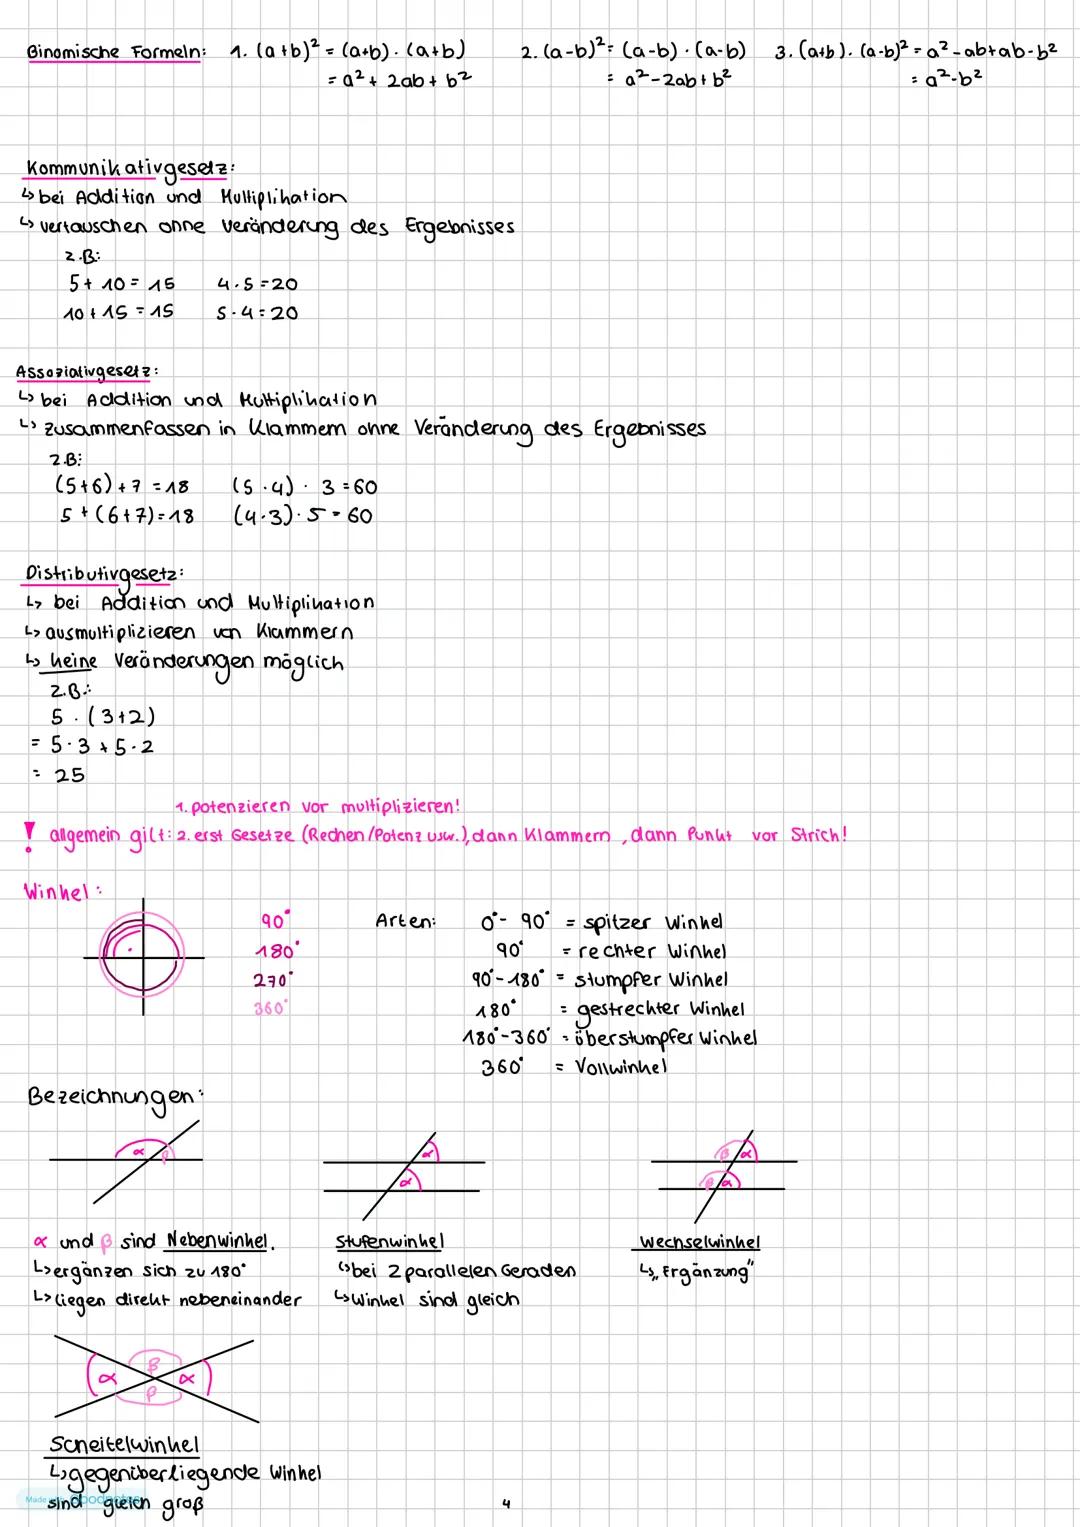 Binomische Formeln: 1. (a+b)² = (a+b) · (a+b) 2. (a-b)² = (a-b) · (a-b) 3. (a+b) · (a-b)² = a² - ab + ab - b²
= a² + 2ab + b² = a² - 2ab + b² = a² - b²
Kommunikativgesetz:
↳ bei Addition und Multiplikation
↳ vertauschen ohne Veränderung des Ergebnisses
z.B:
5 + 10 = 15 4 · 5 = 20
10 + 15 = 15 5 · 4 = 20
Assoziativgesetz:
↳ bei Addition und Multiplikation
↳ zusammenfassen in Klammern ohne Veränderung des Ergebnisses
z.B:
(5+6) + 7 = 18 (5 · 4) · 3 = 60
5 + (6+7) = 18 (4 · 3) · 5 = 60
Distributivgesetz:
↳ bei Addition und Multiplikation
↳ ausmultiplizieren von Klammern
↳ keine Veränderungen möglich
z.B.:
5 · (3+2)
= 5 · 3 + 5 · 2
= 25
1. potenzieren vor multiplizieren!
! allgemein gilt: 2. erst Gesetze (Rechen/Potenz usw.), dann Klammern, dann Punkt vor Strich!
Winkel:
90° Arten: 0° - 90° = spitzer Winkel
180° 90° = rechter Winkel
270° 90° - 180° = stumpfer Winkel
360° 180° = gestrechter Winkel
180° - 360° = überstumpfer Winkel
360° = Vollwinkel
Bezeichnungen:
α β α β α
α β α
α und β sind Nebenwinkel. Stufenwinkel Wechselwinkel
↳ ergänzen sich zu 180° ↳ bei 2 parallelen Geraden ↳ „Ergänzung"
↳ liegen direkt nebeneinander ↳ Winkel sind gleich
β
α α
β
Scheitelwinkel
↳ gegenüberliegende Winkel
sind gleich groß
Made with Goodnotes
4